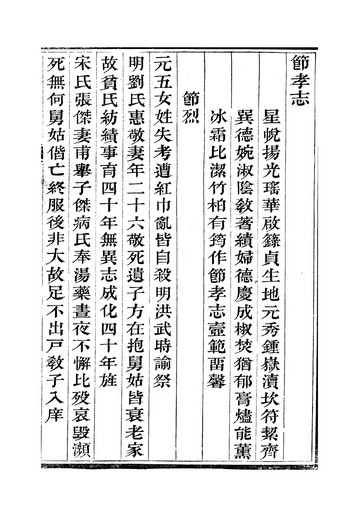 節孝志
星帨揚光瑤華啟籙貞生地元秀鍾嶽瀆坎符絜齊
巽德婉淑陰敎著績婦德慶成椒焚猶郁膏爐能薰
冰霜比潔竹柏有筠作節孝志壼範畱馨
節烈
元五女姓失考遭紅巾亂皆自殺明洪武時諭祭
明劉氏惠敬妻年二十六敬死遺子方在抱舅姑皆衰老家
故貧氏紡績事育四十年無異志成化四十年旌
宋氏張傑妻甫舉子傑病氏奉湯藥晝夜不懈比歿哀毀瀕
死無何舅姑偕亡終服後非大故足不出戸敎子入庠